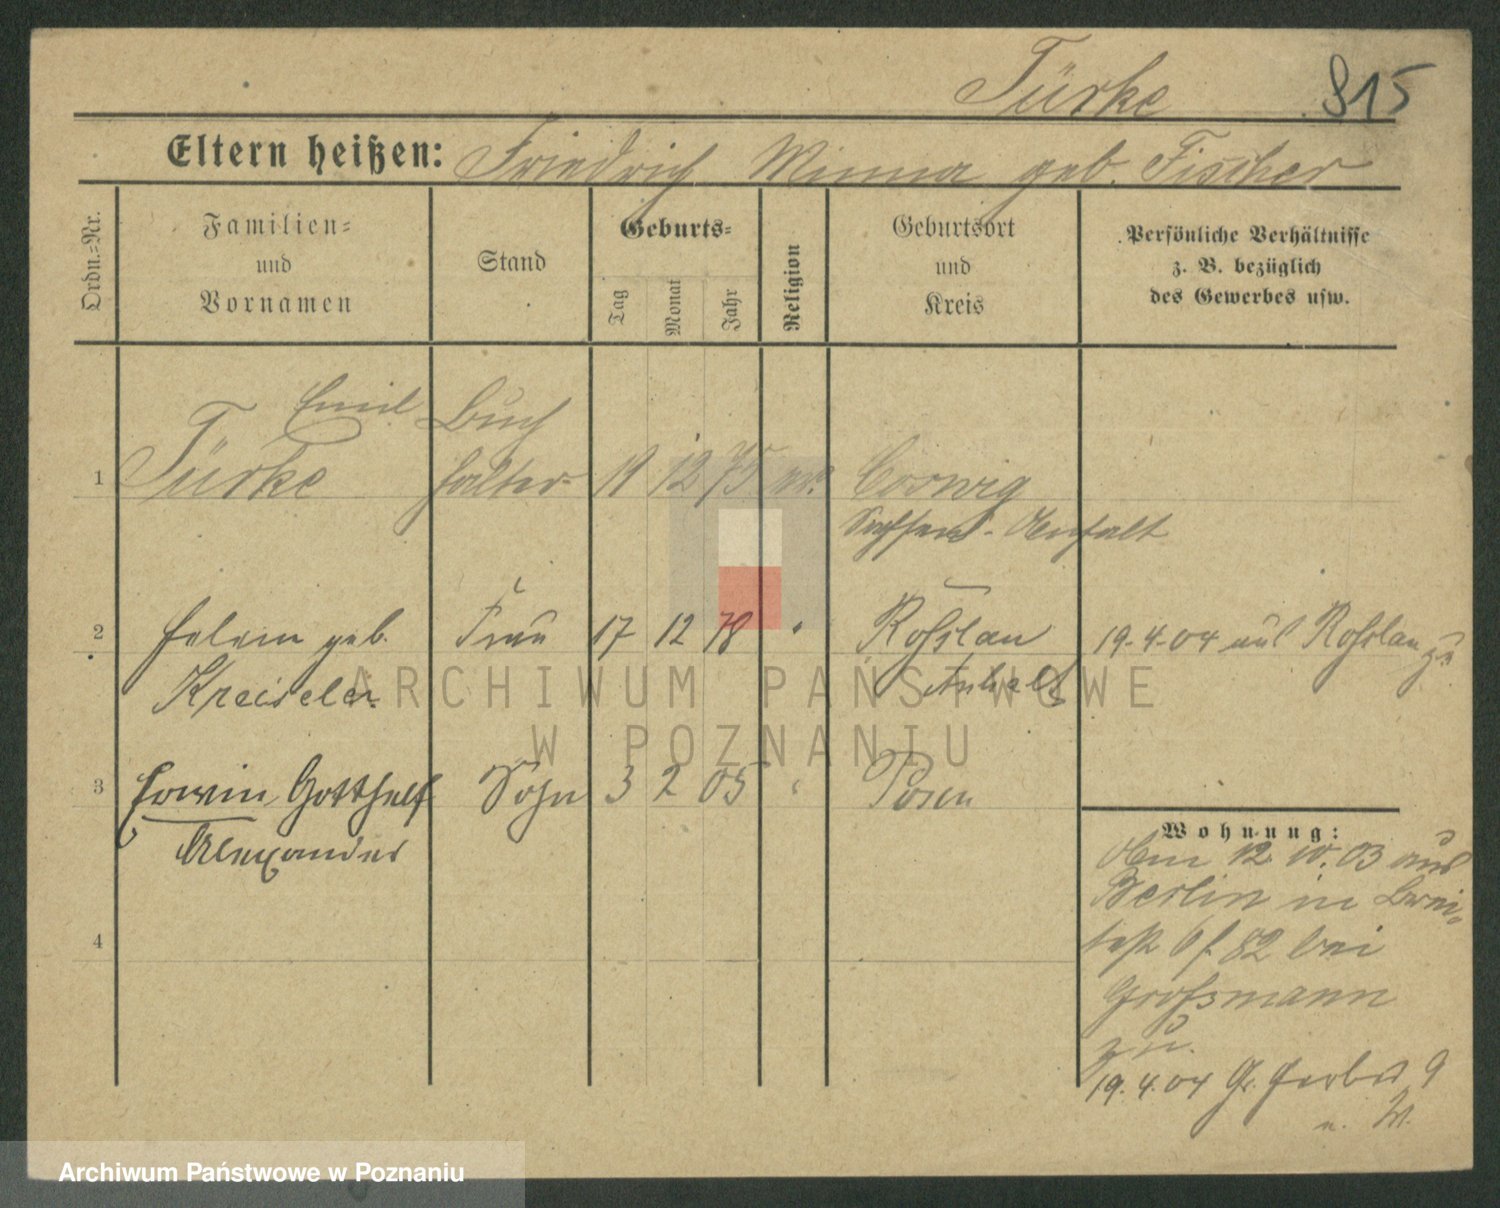 Türke 815
Eltern heißen: Friedrich Minna geb. Fischer
Ordn.-Nr.
Familien-
und
Vornamen
Stand
Geburts-
Tag
Monat
Jahr
Religion
Geburtsort
und
Kreis
Persönliche Verhältnisse
z. B. bezüglich
des Gewerbes usw.
Emil Buch
1 Türke halter 12 75 Coswig
Sachsen-Anhalt
2 geb. Frau 17 12 78 Roßlau 19.4.04 aus Roßlau zu
Kreiseler Anhalt
3 Erwin Gotthelf Sohn 3 2 05 Posen
Alexander
Wohnung:
12. 10. 03 aus
Berlin in
82 bei
Großmann
zu.
4
19.4.04 Gr. Gerber 9
ARCHIWUM PAŃSTWOWE
W POZNANIU
Archiwum Państwowe w Poznaniu